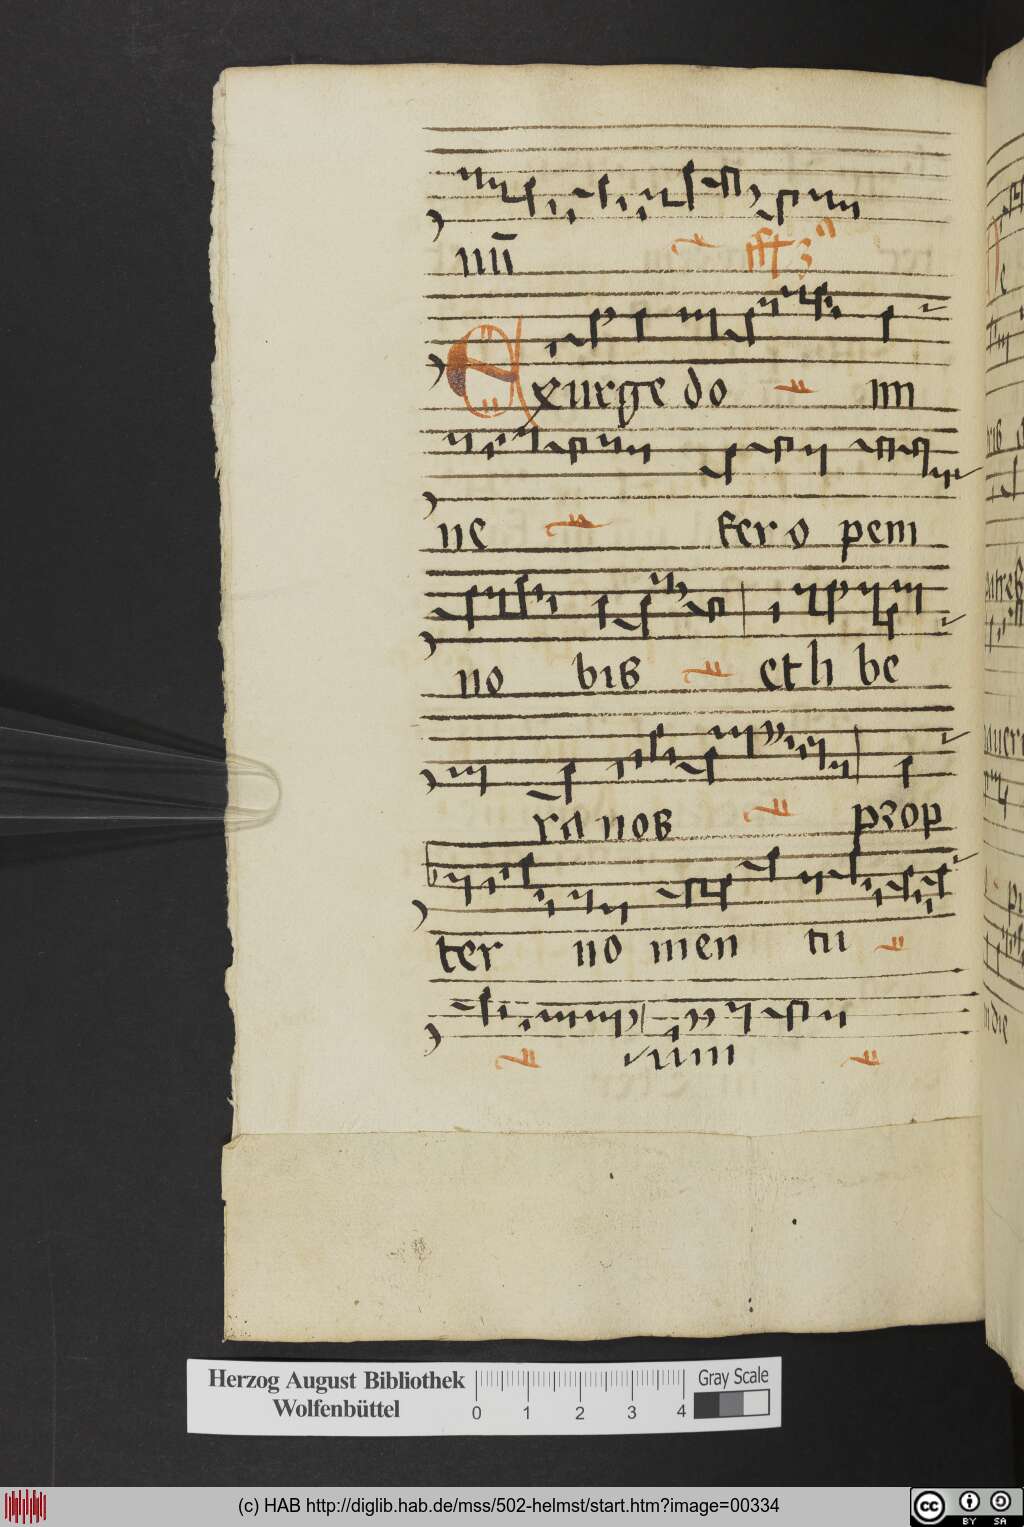 nū
Exurge do mi
ne fer opem
no bis et li be
ra nos prop
ter no men tu
um
Herzog August Bibliothek
Wolfenbüttel
0 1 2 3 4
Gray Scale
(c) HAB http://diglib.hab.de/mss/502-helmst/start.htm?image=00334
cc BY SA